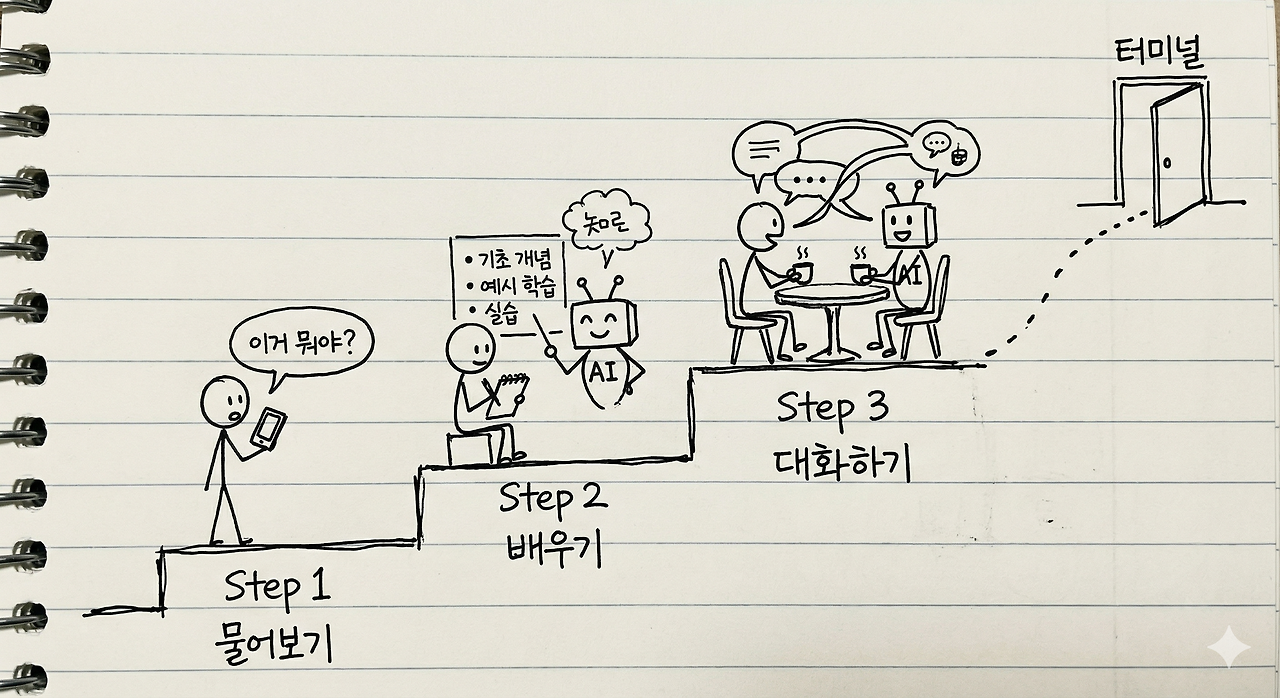 터미널
기초 개념
예시 학습
실습
AI
AI
이거 뭐야?
Step 3
대화하기
Step 2
배우기
Step 1
물어보기